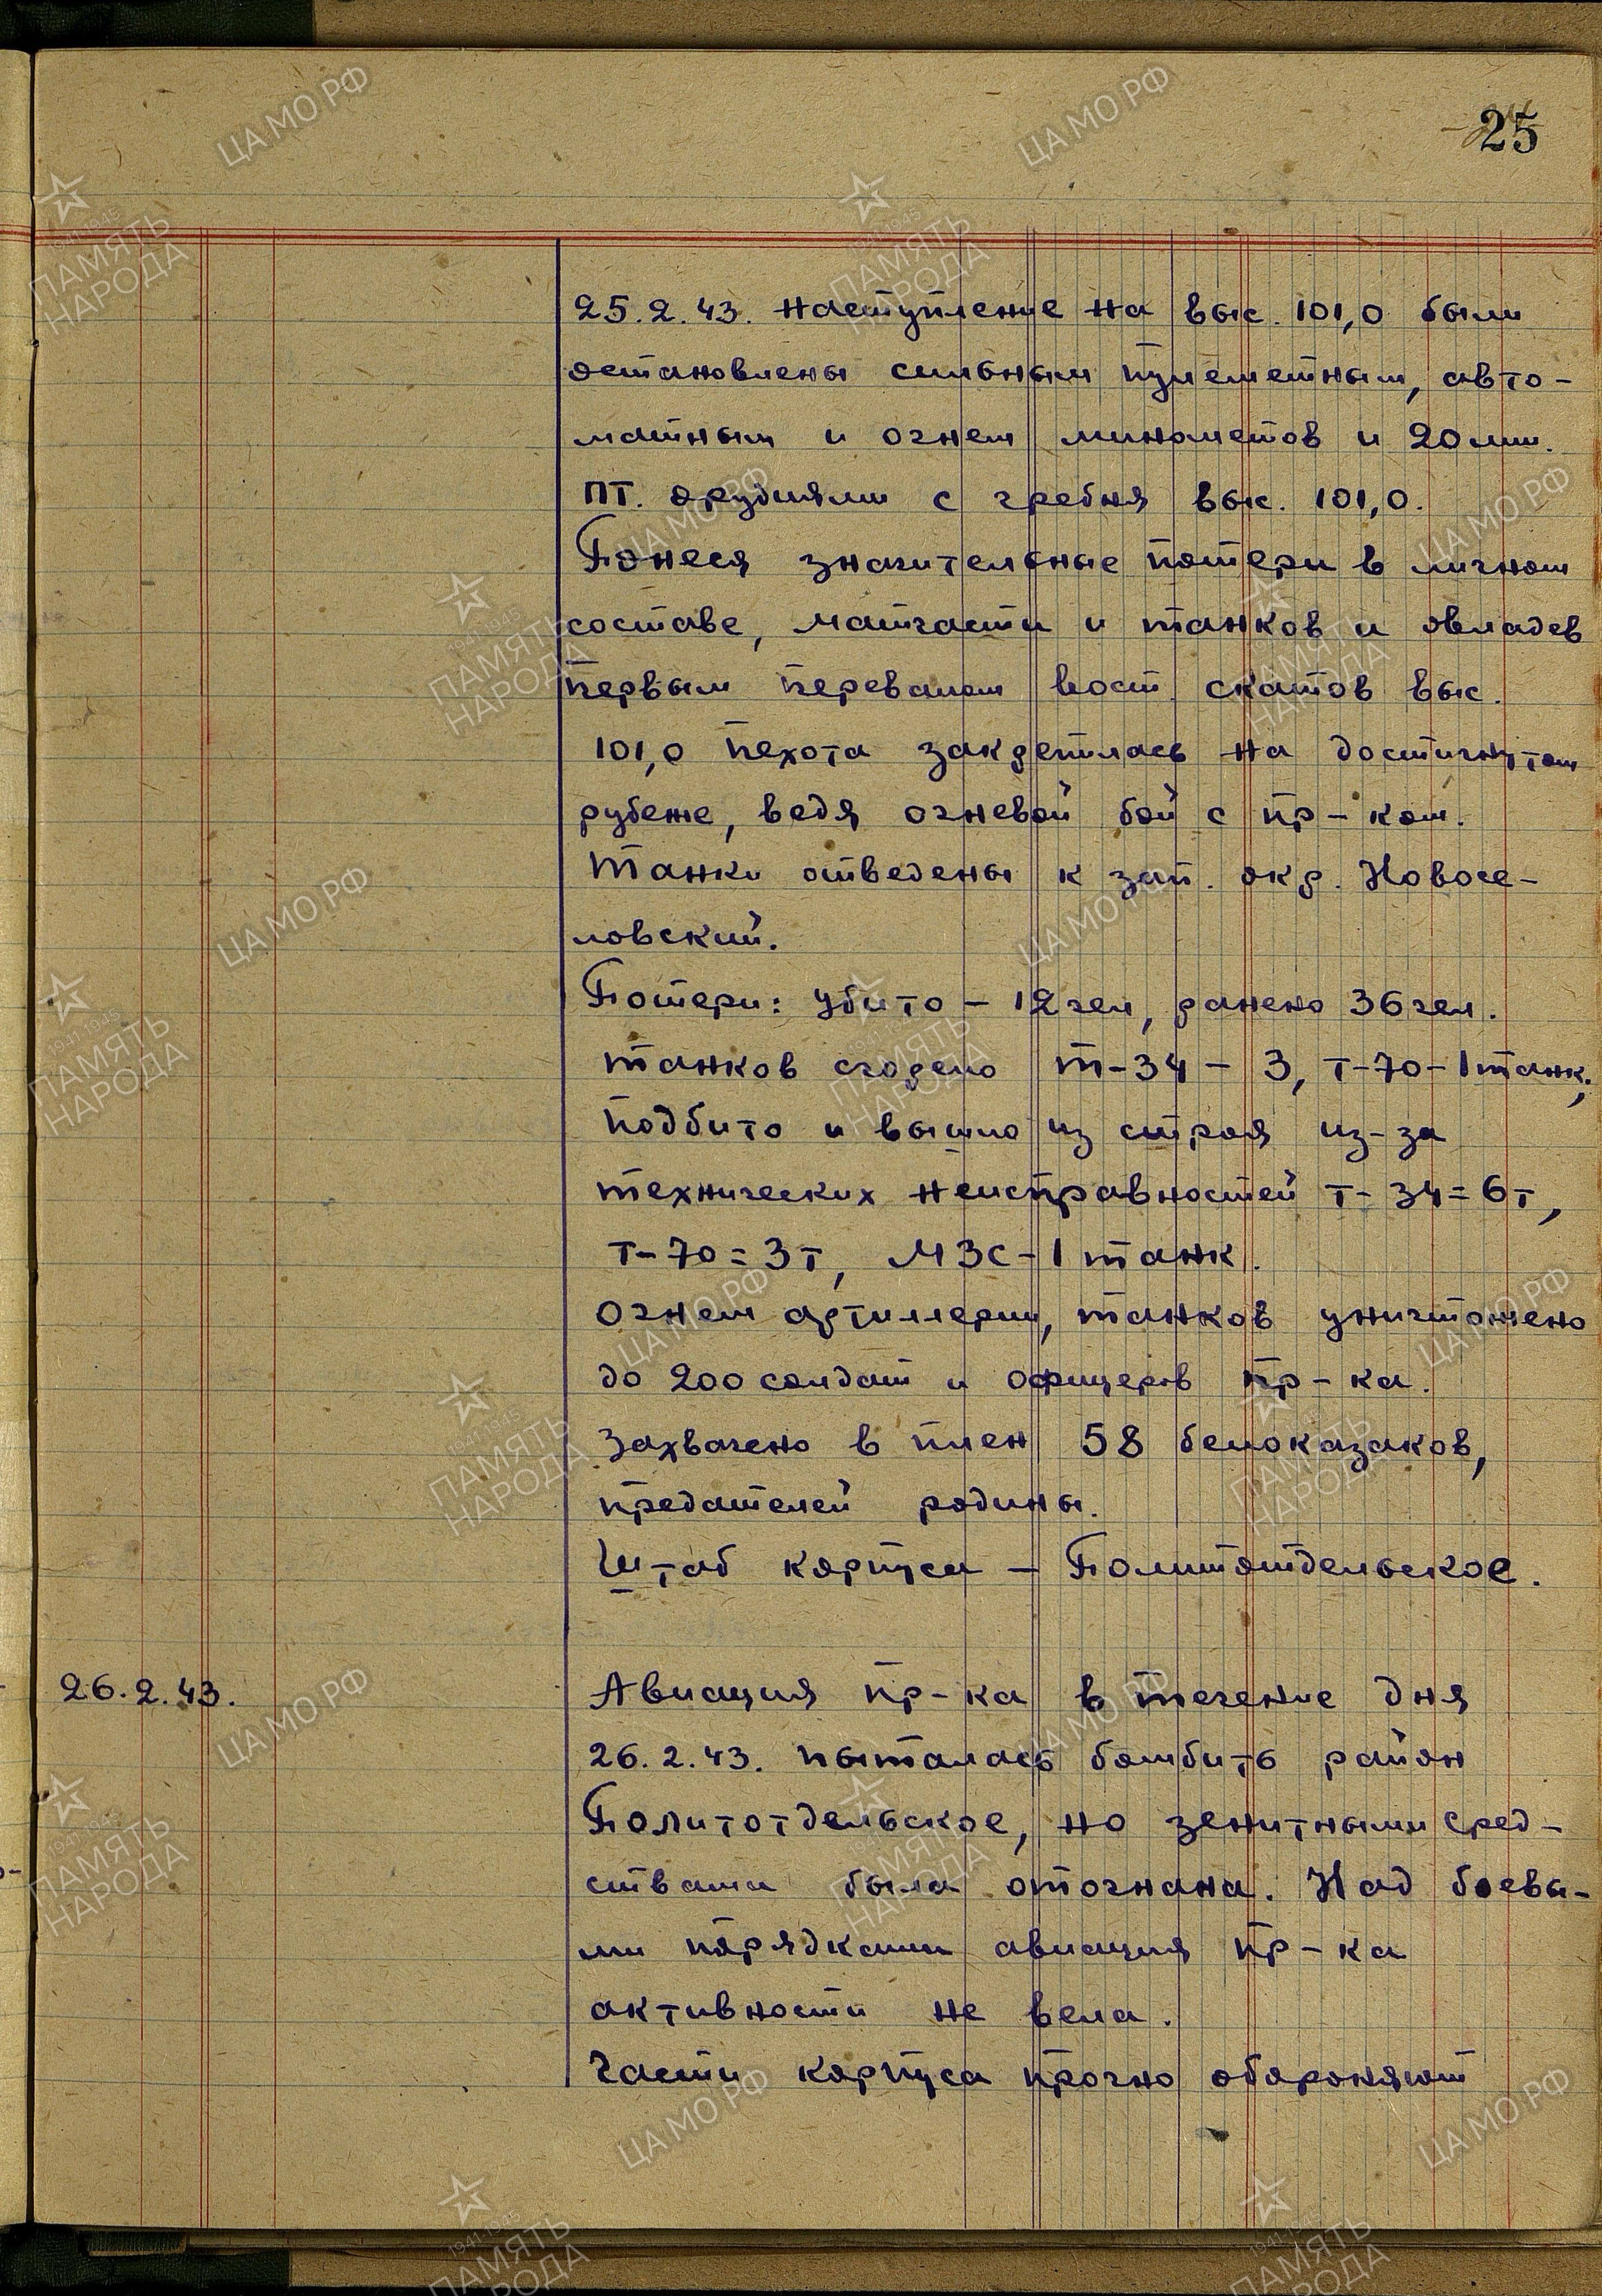 25
25.2.43. наступление на выс. 101,0 были
остановлены сильным пулеметным, авто-
матным и огнем минометов и 20 мм.
ПТ. орудиями с гребня выс. 101,0.
Понеся значительные потери в личном
составе, матчасти и танков и овладев
первым перевалом вост. скатов выс.
101,0 пехота закрепилась на достигнутом
рубеже, ведя огневой бой с пр-ком.
Танки отведены к зап. окр. Новосе-
ловский.
Потери: убито - 12 чел, ранено 36 чел.
танков сгорело Т-34 - 3, Т-70 - 1 танк;
подбито и вышло из строя из-за
технических неисправностей Т-34 = 6т,
Т-70 = 3т, МЗС - 1 танк.
Огнем артиллерии, танков уничтожено
до 200 солдат и офицеров пр-ка.
Захвачено в плен 58 белоказаков,
предателей родины.
Штаб корпуса - Политотдельское.
26.2.43. Авиация пр-ка в течение дня
26.2.43. пыталась бомбить район
Политотдельское, но зенитными сред-
ствами была отогнана. Над боевы-
ми порядками авиация пр-ка
активности не вела.
Части корпуса прочно обороняют
ЦАМО РФ
1941-1945
ПАМЯТЬ
НАРОДА